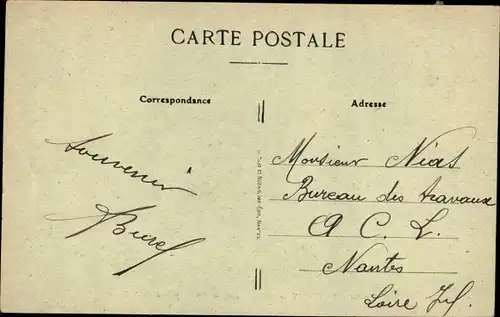 CARTE POSTALE
Correspondance
Adresse
Souvenir
Monsieur Nias
Bureau des travaux
A C L.
Nantes
Loire Inf.